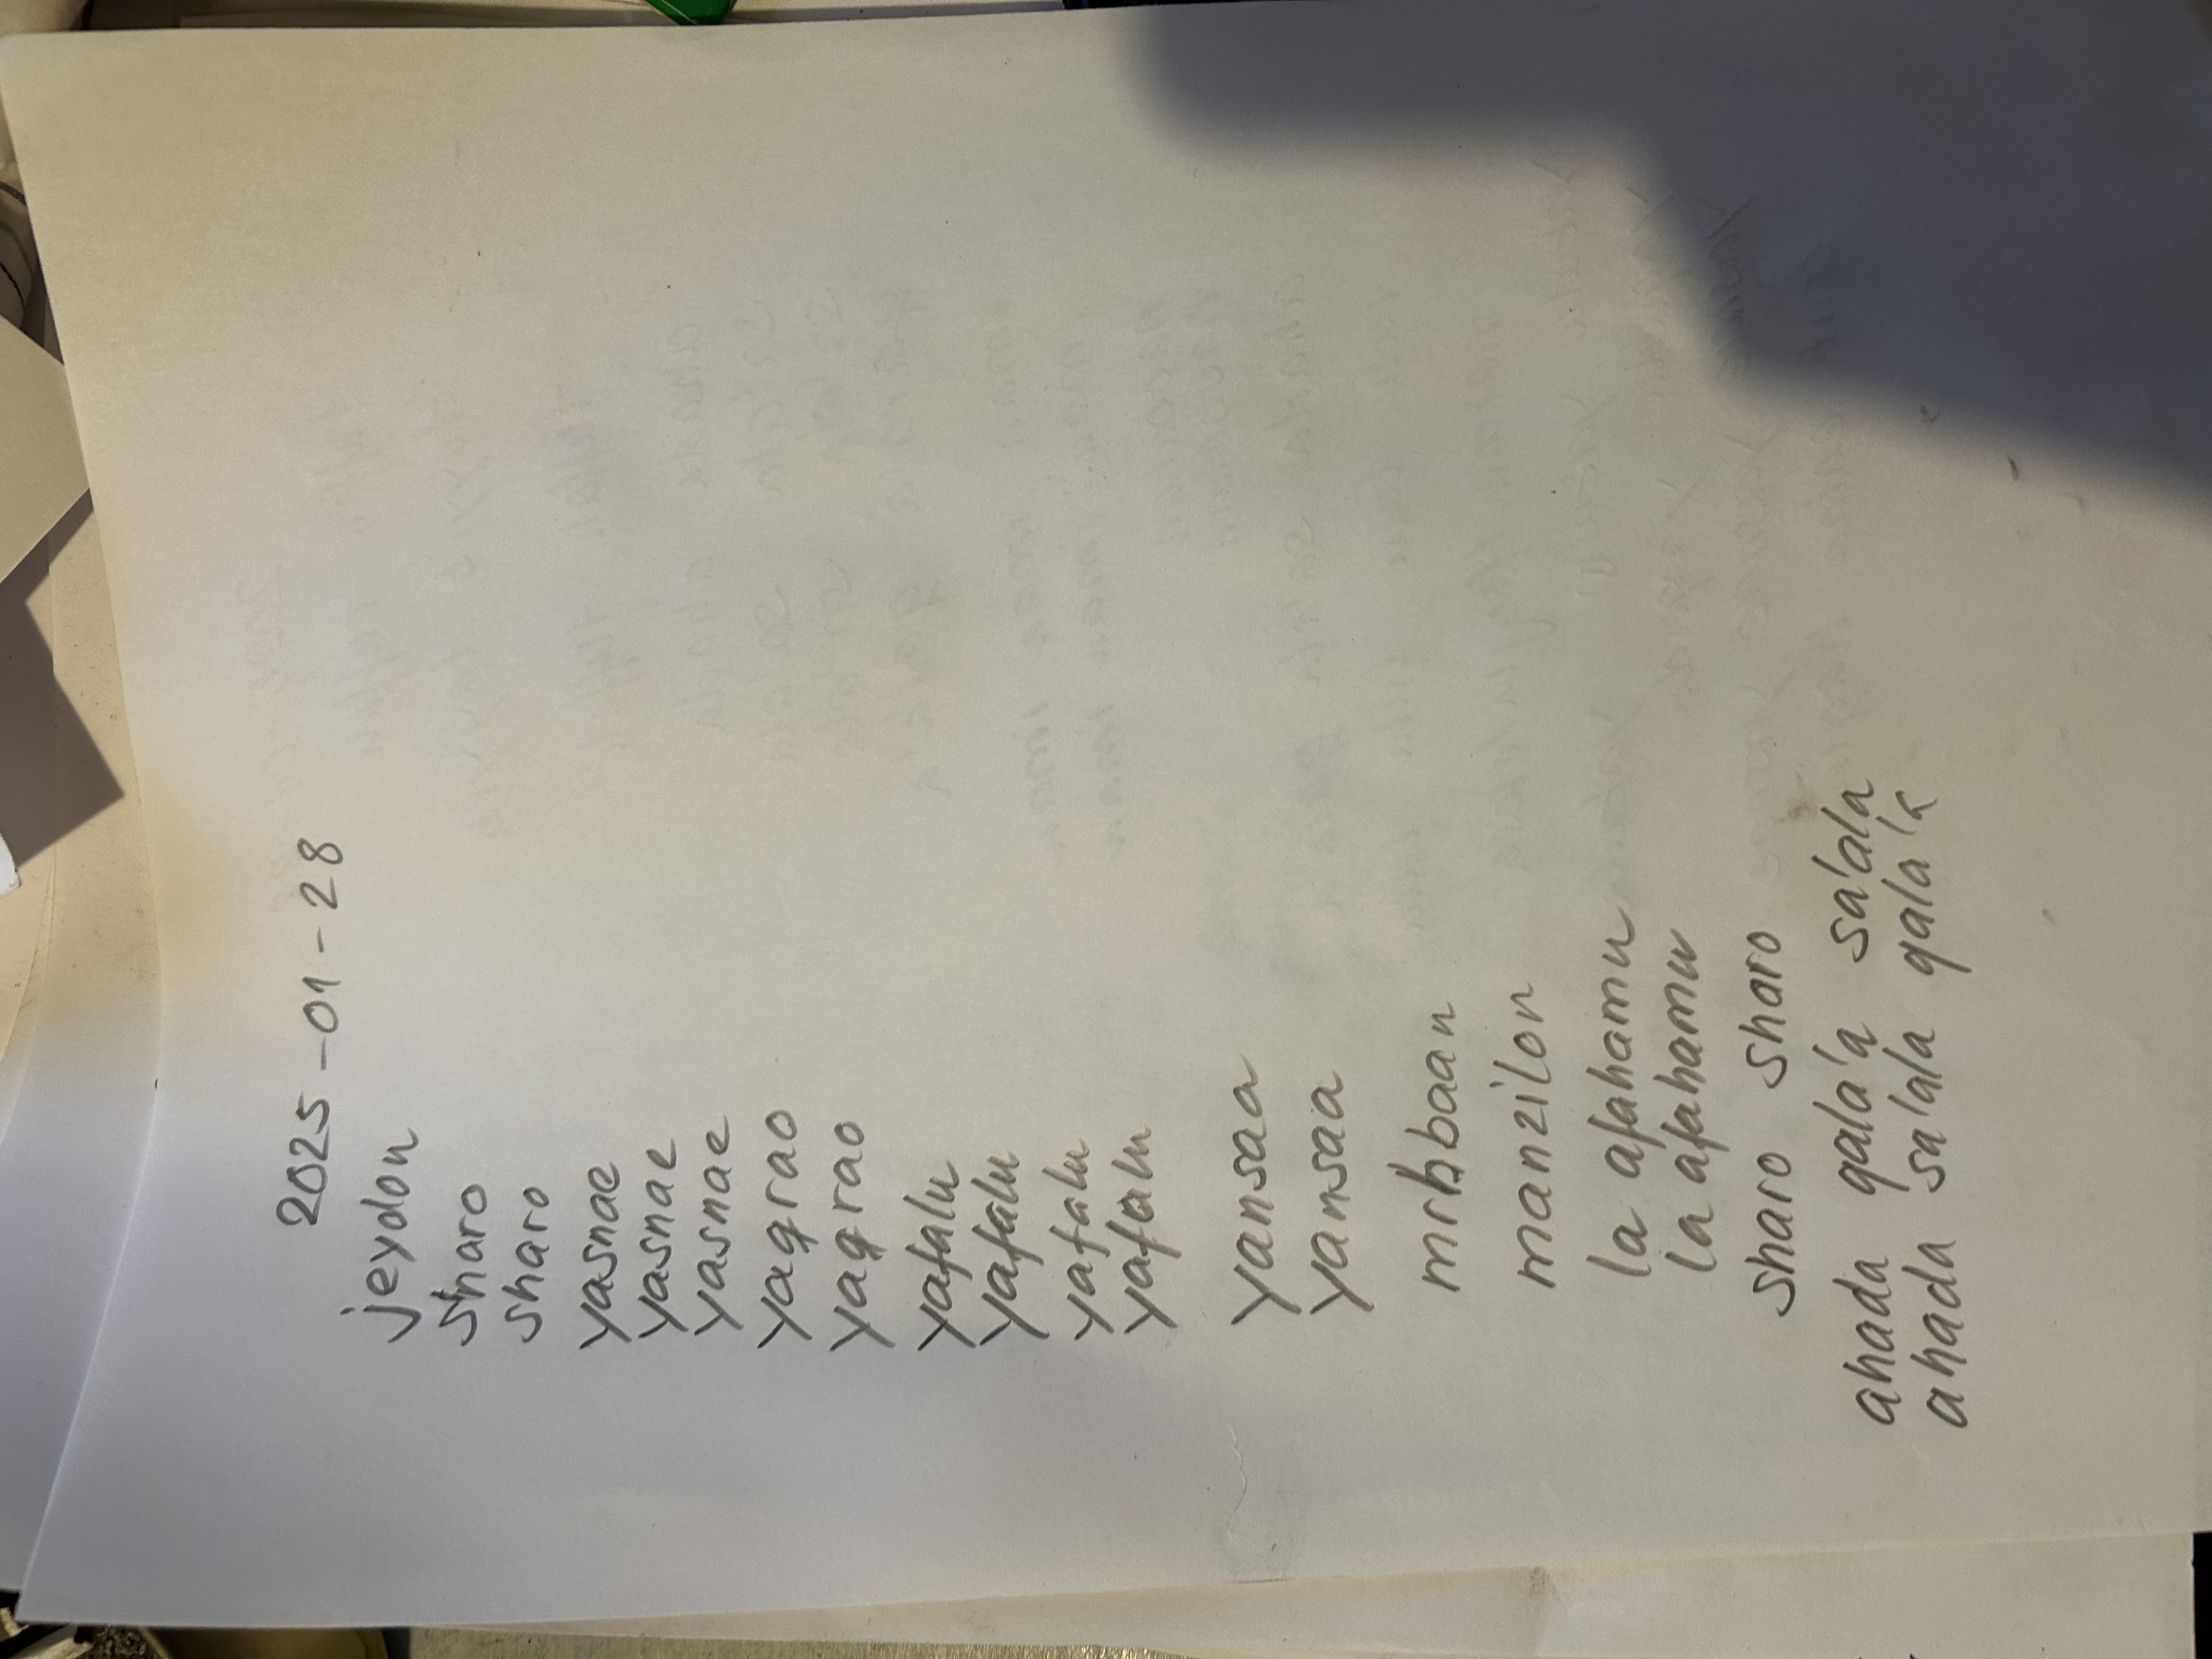 2025-01-28
jeydon
sharo
sharo
yasnae
yasnae
yasnae
yaqrao
yaqrao
yafalu
yafalu
yafalu
yafalu
yansaa
yansaa
mrhbaan
manzilon
la afahamu
la afahamu
sharo sharo
ahada qala'a sa'ala
ahada sa'ala qala'a